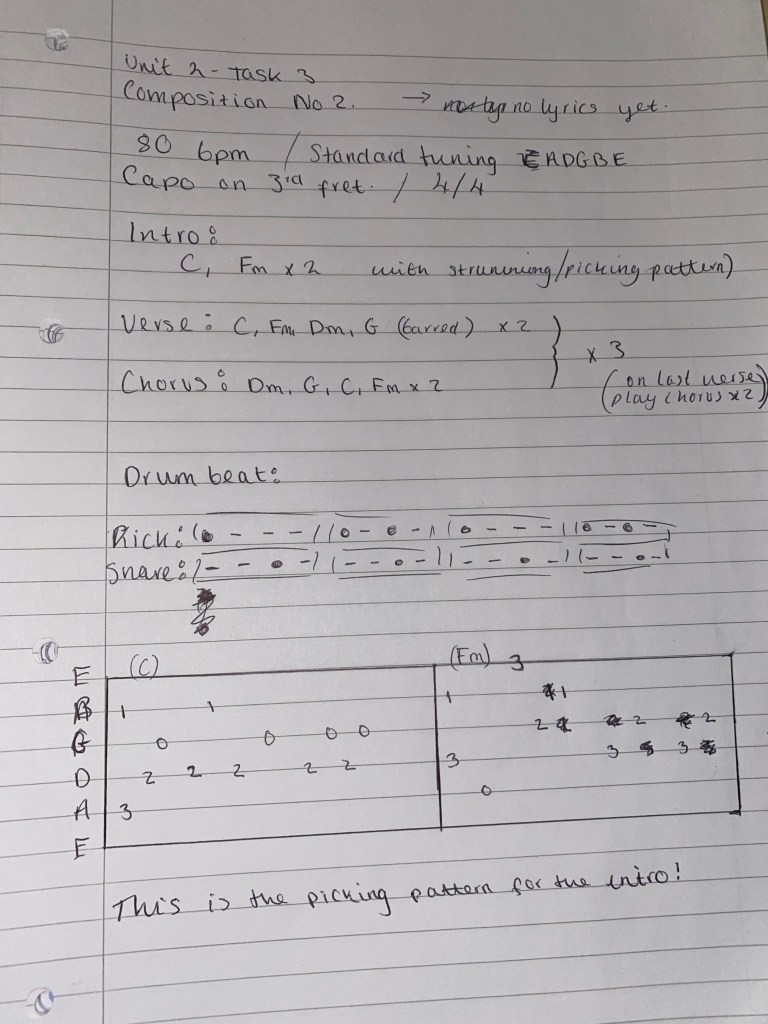 Unit 2 - Task 3
Composition No 2. → no lyrics yet.
80 bpm / Standard tuning EADGBE
Capo on 3rd fret. / 4/4
Intro:
C, Fm x 2 with strumming/picking pattern)
Verse: C, Fm, Dm, G (barred) x 2 } x 3
Chorus: Dm, G, C, Fm x 2 (on last verse
play chorus x2)
Drum beat:
Kick: (o - - - | | o - o - | | o - - - | | o - o - |
Snare: | - - o - | | - - o - | | - - o - | | - - o - |
(C) (Fm)
E 3
B 1 1 1 1
G 0 0 0 0 2 2 2
D 2 2 2 2 2 3 3 3
A 3 0
E
This is the picking pattern for the intro!